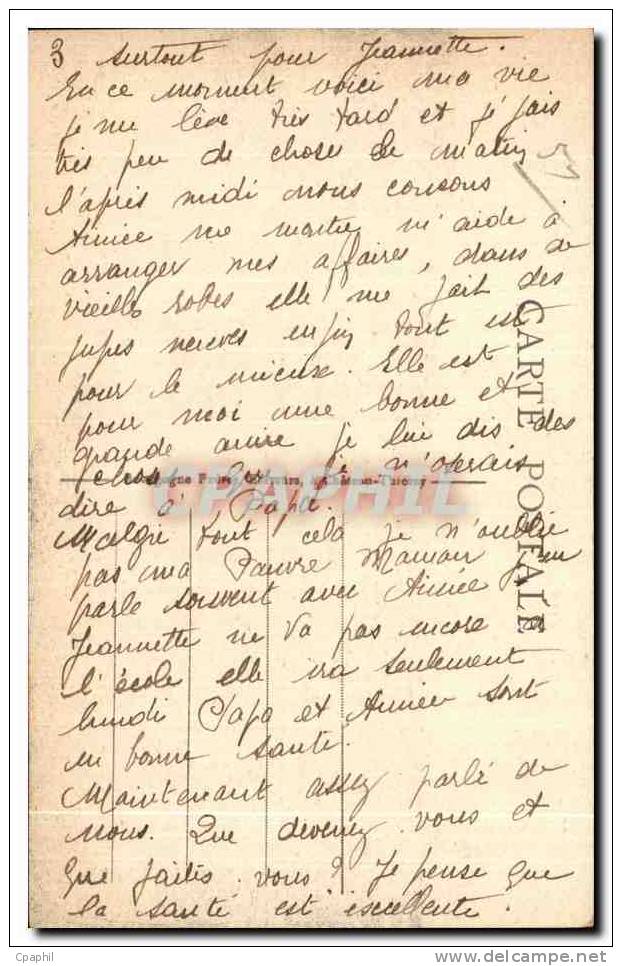 3 surtout pour Jeannette.
En ce moment voici ma vie
je me lève très tard et je fais
très peu de choses le matin
l'après midi nous cousons
Aimée me montre m'aide à
arranger mes affaires, dans de
vieilles robes elle me fait des
jupes neuves enfin tout est
pour le mieux. Elle est
pour moi une bonne et
grande amie je lui dis des
choses que je n'oserais
dire à Papa.
Malgré tout cela je n'oublie
pas ma Pauvre Maman j'en
parle souvent avec Aimée
Jeannette ne va pas encore à
l'école elle ira seulement
lundi Papa et Aimée sont
en bonne santé.
Maintenant assez parlé de
nous. Que devenez vous et
que faites vous? Je pense que
la santé est excellente.
CARTE POSTALE
Château-Thierry
CPAPHIL
Cpaphil
delcampe.net